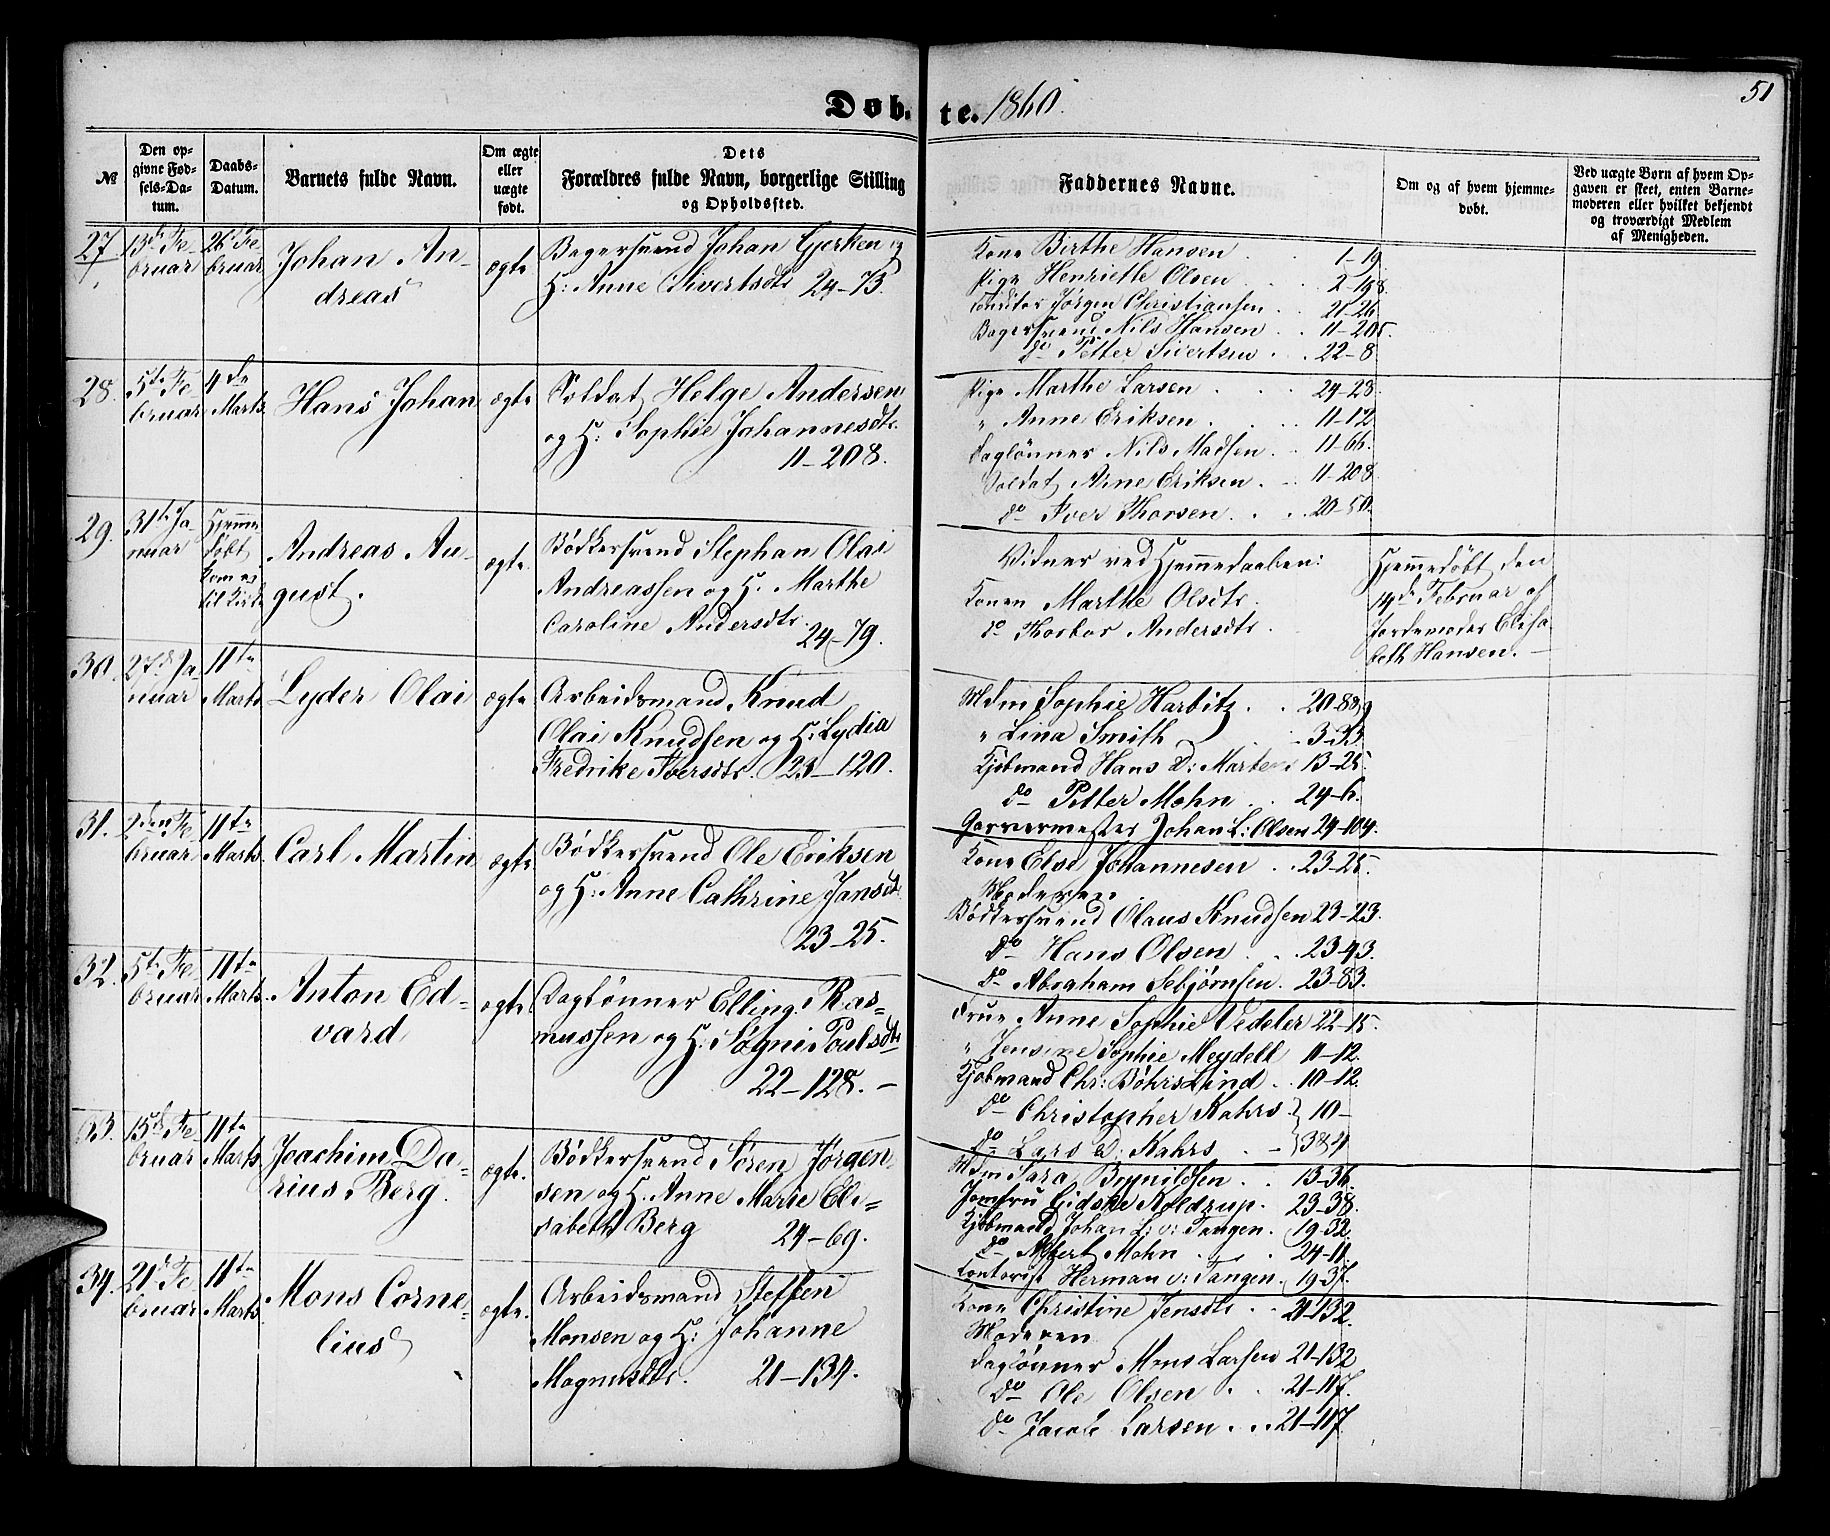 Døb- te. 1860.
51
№
Den op-
givne Fød-
sels-Da-
tum.
Daabs-
Datum.
Barnets fulde Navn.
Om ægte
eller
uægte
født.
Dets
Forældres fulde Navn, borgerlige Stilling
og Opholdssted.
Faddernes Navne.
Om og af hvem hjemme-
døbt.
Ved uægte Børn af hvem Op-
gaven er skeet, enten Barne-
moderen eller hvilket bekjendt
og troværdigt Medlem
af Menigheden.
27
13de Fe-
bruar
26de Fe-
bruar
Johan An-
dreas
ægte
Bagersvend Johan Gerken og
H: Anne Sivertsdtr 24-73.
Kone Birthe Hansen 1-19
Pige Henriette Olsen 2-198.
Conditor Jørgen Christiansen 21-26
Bagersvend Nils Hansen 11-205.
do Petter Sivertsen 22-8
28.
5te Fe-
bruar
4de
Marts
Hans Johan
ægte
Soldat Helge Andersen
og H: Sophie Johannesdtr.
11-208.
Pige Marthe Larsen 24-28
" Anne Eriksen 11-12
Daglønner Nils Madsen 11-66.
Soldat Arne Eriksen 11-208
do Iver Thorsen 20-50.
29.
31te Ja-
nuar
Hjemme
døbt
kom ei
til Kirke
Andreas Au-
gust.
ægte.
Bødkersvend Stephan Olai
Andreassen og H. Marthe
Caroline Andersdtr.
24-79.
Vidner ved Hjemmedaaben:
Konen Marthe Olsdtr.
do Thorbor Andersdtr.
Hjemmedøbt den
14de Februar af
Jordemoder Elisa-
beth Hansen.
30.
27de Ja-
nuar
11te
Marts
Lyder Olai
ægte
Arbeidsmand Knud
Olai Knudsen og H: Lydia
Fredrike Iversdtr. 23-120.
Mdm Sophie Harbitz 20-88
" Lina Smith 3-33
Kjøbmand Hans D: Martens 13-25.
do Petter Mohn 24-6.
Garvermester Johan L: Olsen 24-104.
31.
2den Fe-
bruar
11te
Marts
Carl Martin
ægte
Bødkersvend Ole Eriksen
og H: Anne Cathrine Jansdtr
23-25.
Kone Else Johannesen 23-25.
Moderen
Bødkersvend Olaus Knudsen 23-23.
do Hans Olsen 23-93.
do Abraham Sebjørnsen 23-83.
32.
5te Fe-
bruar
11te
Marts
Anton Ed-
vard
ægte
Daglønner Elling Ras-
mussen og H: Søgni Poulsdtr
22-128.
Frue Anne Sophie Vedeler 22-15.
" Jensine Sophie Meydell 11-12.
Kjøbmand Chr: Bøhrs Lind 10-12.
do Christopher Kahrs 10-
do Lars D: Kahrs 384
33.
15de Fe-
bruar
11te
Marts
Joachim Da-
rius Berg.
ægte.
Bødkersvend Søren Jørgen-
sen og H. Anne Marie Eli-
sabeth Berg 24-69.
Mdm Sara Brynildsen 13-36.
Jomfru Gidske Koldrup 23-38.
Kjøbmand Johan L: v: Tangen 19-32.
do Albert Mohn 24-11.
Contorist Herman v: Tangen 19-37.
34.
21de Fe-
bruar
11te
Marts
Mons Corne-
lius
ægte.
Arbeidsmand Steffen
Monsen og H: Johanne
Magnusdtr. 21-134.
Kone Christine Jensdtr 21-132.
Moderen
Daglønner Mons Larsen 21-132
do Ole Olsen 21-117.
do Jacob Larsen 21-117.